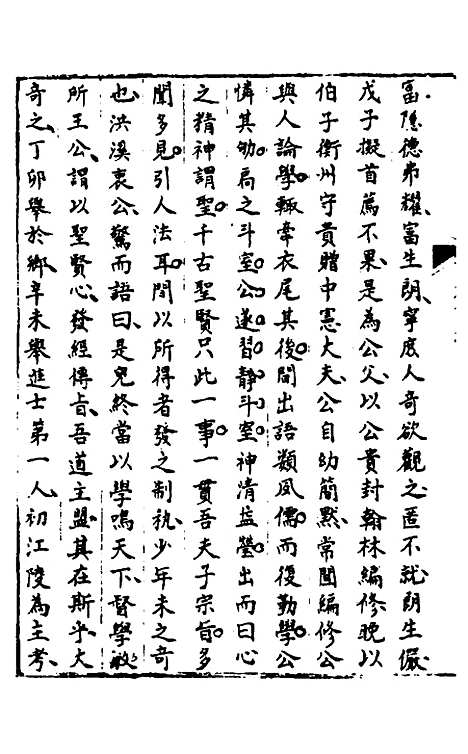 富隱德弗耀富生朗寧庶人奇欲觀之匿不就朗生儼
戊子擬首薦不果是為公父以公貴封翰林編修晚以
伯子衡州守貴贈中憲大夫公自幼簡默常聞編修公
與人論學輒牽衣尾其後間出語類風儒而復勤學公
憐其幼扃之斗室公遂習靜斗室神清益瑩出而曰心
之精神謂聖千古聖賢只此一事一貫吾夫子宗旨多
聞多見引人法耳間以所得者發之制執少年未之奇
也洪溪衷公驚而語曰是兒終當以學鳴天下督學敬
所王公謂以聖賢心發經傳旨吾道主盟其在斯乎大
奇之丁卯舉於鄉辛未舉進士第一人初江陵為主考